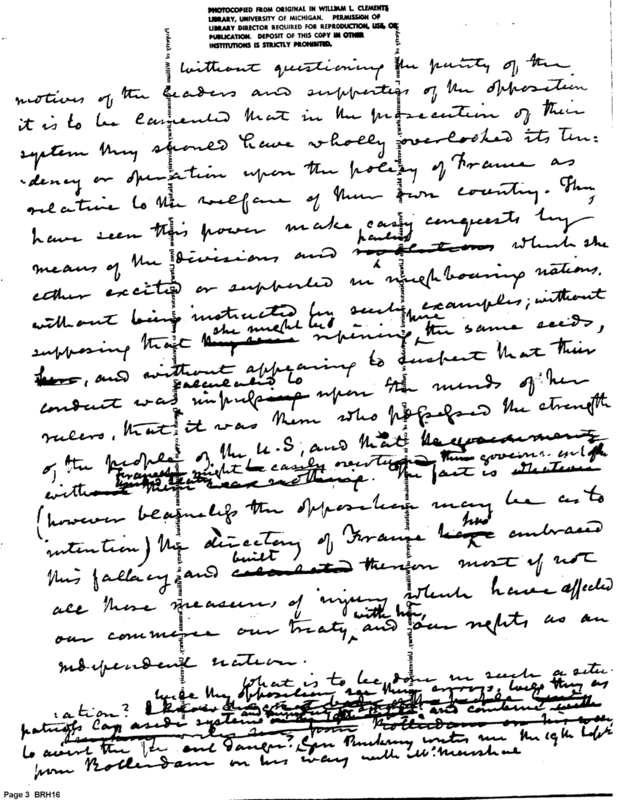 PHOTOCOPIED FROM ORIGINAL IN WILLIAM L. CLEMENTS
LIBRARY, UNIVERSITY OF MICHIGAN. PERMISSION OF
LIBRARY DIRECTOR REQUIRED FOR REPRODUCTION, USE, OR
PUBLICATION. DEPOSIT OF THIS COPY IN OTHER
INSTITUTIONS IS STRICTLY PROHIBITED.
Without questioning the purity of the
motives of the leaders and supporters of the opposition
it is to be lamented that in the prosecution of their
system they should have wholly overlooked its ten=
dency or operation upon the policy of France as
relative to the welfare of their own country. They
have seen this power make easy conquests by
parties
means of the divisions and revolutions which she
either excited or supported in neighbouring nations.
without being instructed by such examples; without
she might be here
supposing that ripening the same seeds,
here, and without appearing to suspect that their
calculated to
conduct was impulsing upon the minds of her
rulers, that it was them who possessed the strength
of the people of the U.S; and that the government
France might be easily
without them was nothing. The fact is
(however blameless the opposition may be as to
had
intention) the directory of France have embraced
built
this fallacy and calculated thereon most if not
all those measures of injury which have affected
with her,
our commerce our treaty and our rights as an
independent nation.
What is to be done in such a situ
ation?
patriots systems and combine with
to avert the danger? Gen Pinckney writes me the 19th Sept
from Rotterdam on his way with Mr. Marshal
Page 3 BRH16